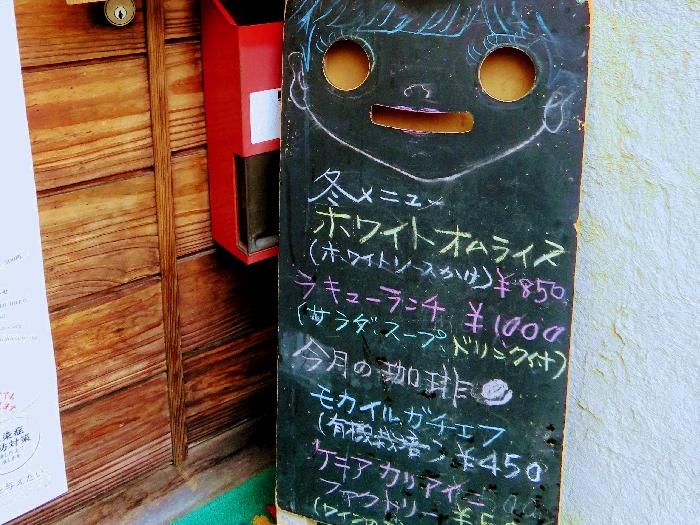 冬メニュー
ホワイトオムライス
(ホワイトソースかけ) ¥850
ラキューランチ ¥1000
(サラダ、スープ、ドリンク付)
今月の珈琲
モカイルガチェフ
(有機栽培) ¥450
ケキア カリアイニ
ファクトリー
染症
防対策
与えたい